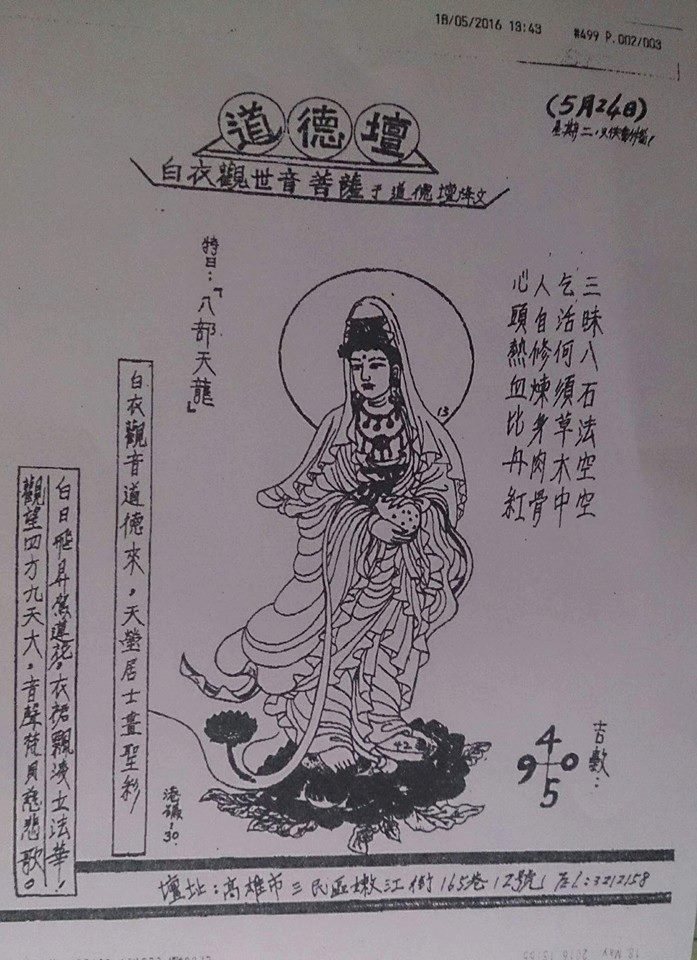 18/05/2016 13:43 #499 P.002/003
(5月24日)
道德壇
白衣觀世音菩薩于道德壇降文
三昧八石法空空
乞活何須草木中
人自修煉身肉骨
心頭熱血比丹紅
特曰：「八部天龍」
13
白衣觀音道德來，天瑩居士畫聖彩
白日飛昇
衣裙飄淡立法華，
觀望四方九天大，音聲梵貝慈悲歌。
42
吉數：
4
9 0
5
港議：30
壇址：高雄市三民區嫩江街165巷12號 TEL:3212158